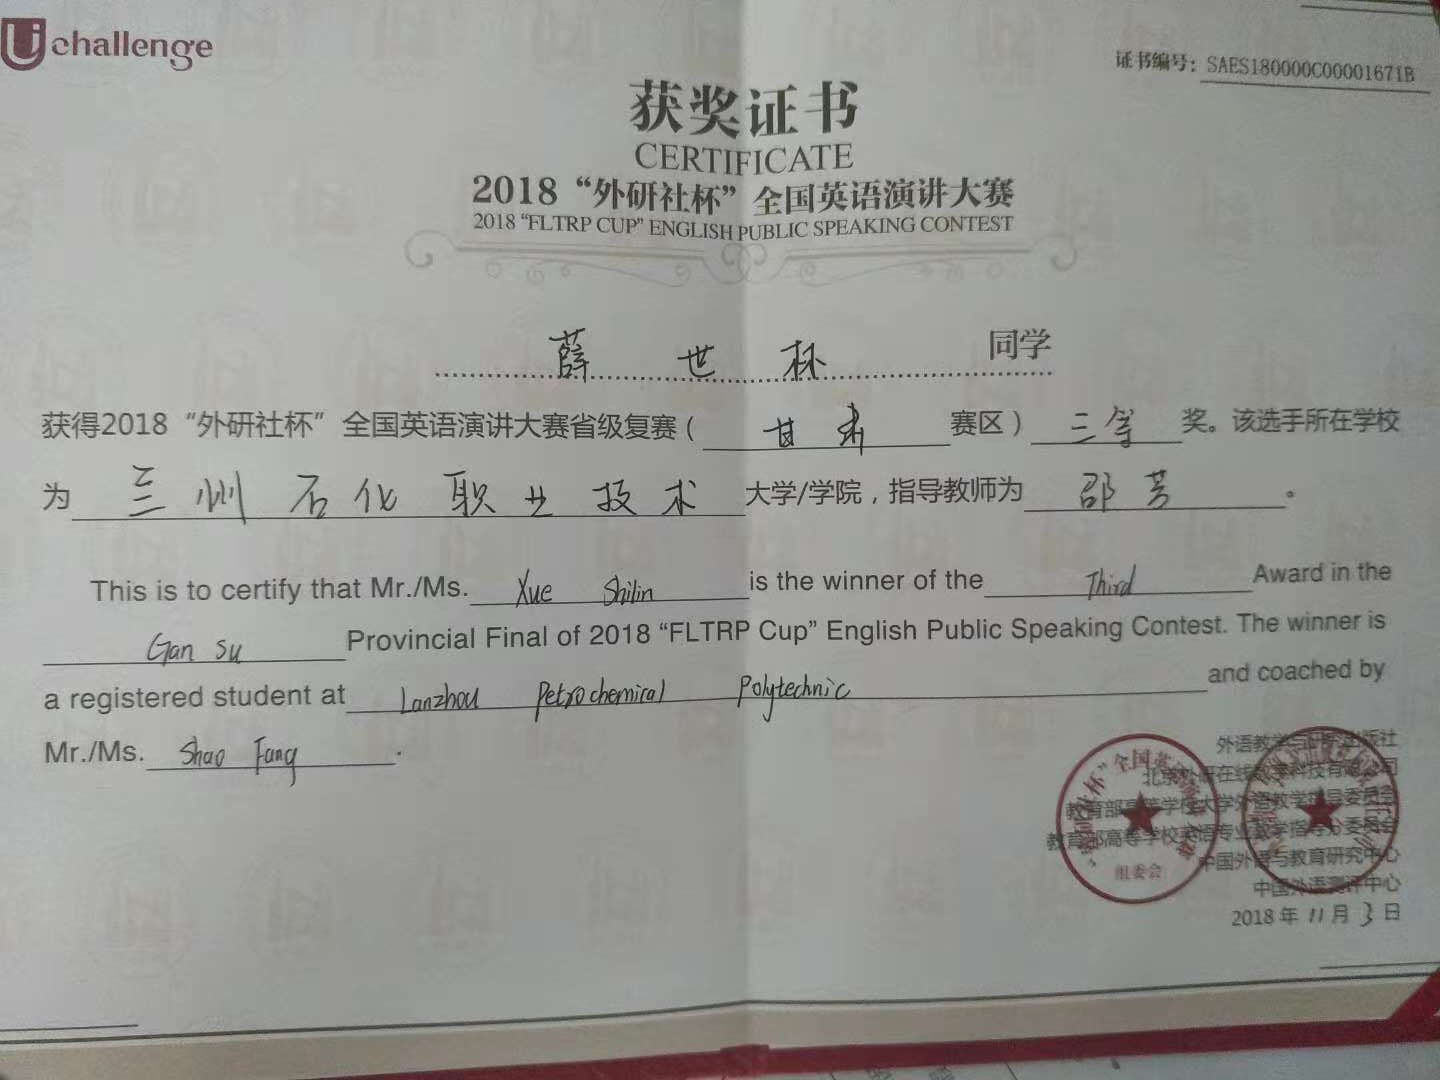 Uchallenge
证书编号：SAES180000C00001671B
获奖证书
CERTIFICATE
2018“外研社杯”全国英语演讲大赛
2018 “FLTRP CUP” ENGLISH PUBLIC SPEAKING CONTEST
薛世林 同学
获得2018“外研社杯”全国英语演讲大赛省级复赛（甘肃赛区）三等奖。该选手所在学校
为兰州石化职业技术大学/学院，指导教师为邵芳。
This is to certify that Mr./Ms. Xue Shilin is the winner of the Third Award in the
Gan Su Provincial Final of 2018 “FLTRP Cup” English Public Speaking Contest. The winner is
a registered student at Lanzhou Petrochemical Polytechnic and coached by
Mr./Ms. Shao Fang.
外语教学与研究出版社
北京外研在线教育科技有限公司
教育部高等学校大学外语教学指导委员会
教育部高等学校英语专业教学指导分委员会
中国外语与教育研究中心
中国外语测评中心
组委会
2018年11月3日